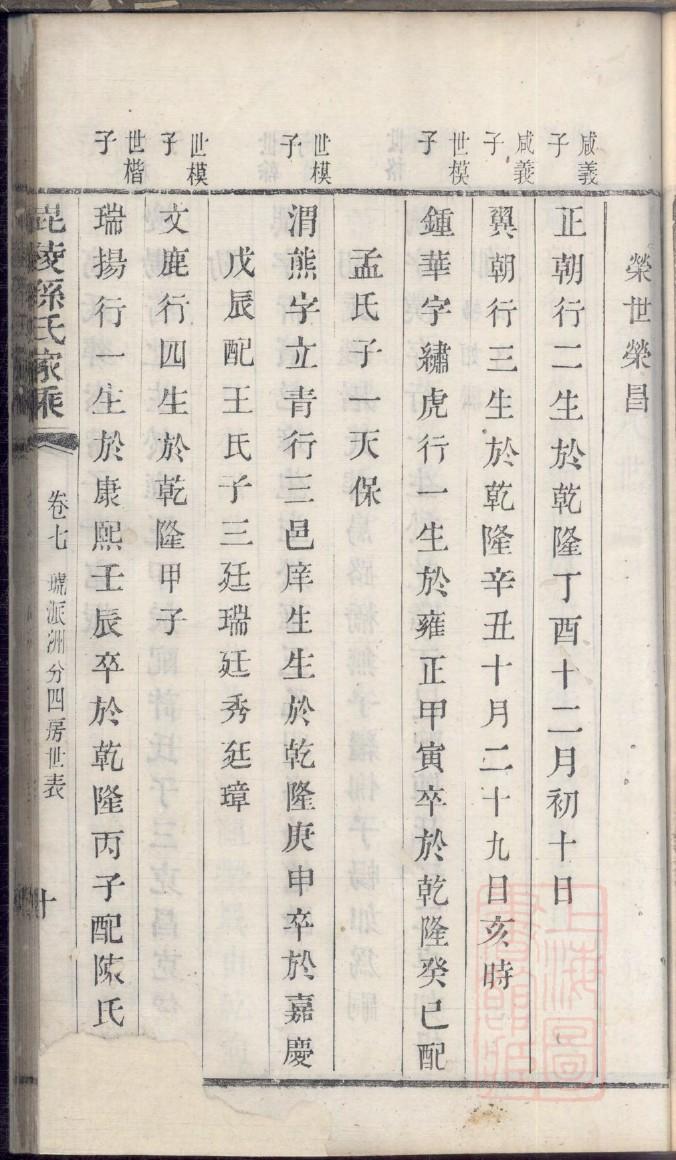 榮世榮昌
咸義子
正朝行二生於乾隆丁酉十二月初十日
咸義子
翼朝行三生於乾隆辛丑十月二十九日亥時
世模子
鍾華字繡虎行一生於雍正甲寅卒於乾隆癸巳配
孟氏子一天保
世模子
渭熊字立青行三邑庠生生於乾隆庚申卒於嘉慶
戊辰配王氏子三廷瑞廷秀廷璋
世模子
文鹿行四生於乾隆甲子
世楷子
瑞揚行一生於康熙壬辰卒於乾隆丙子配陳氏
毘陵孫氏家乘
卷七 琥派洲分四房世表
十
上海圖